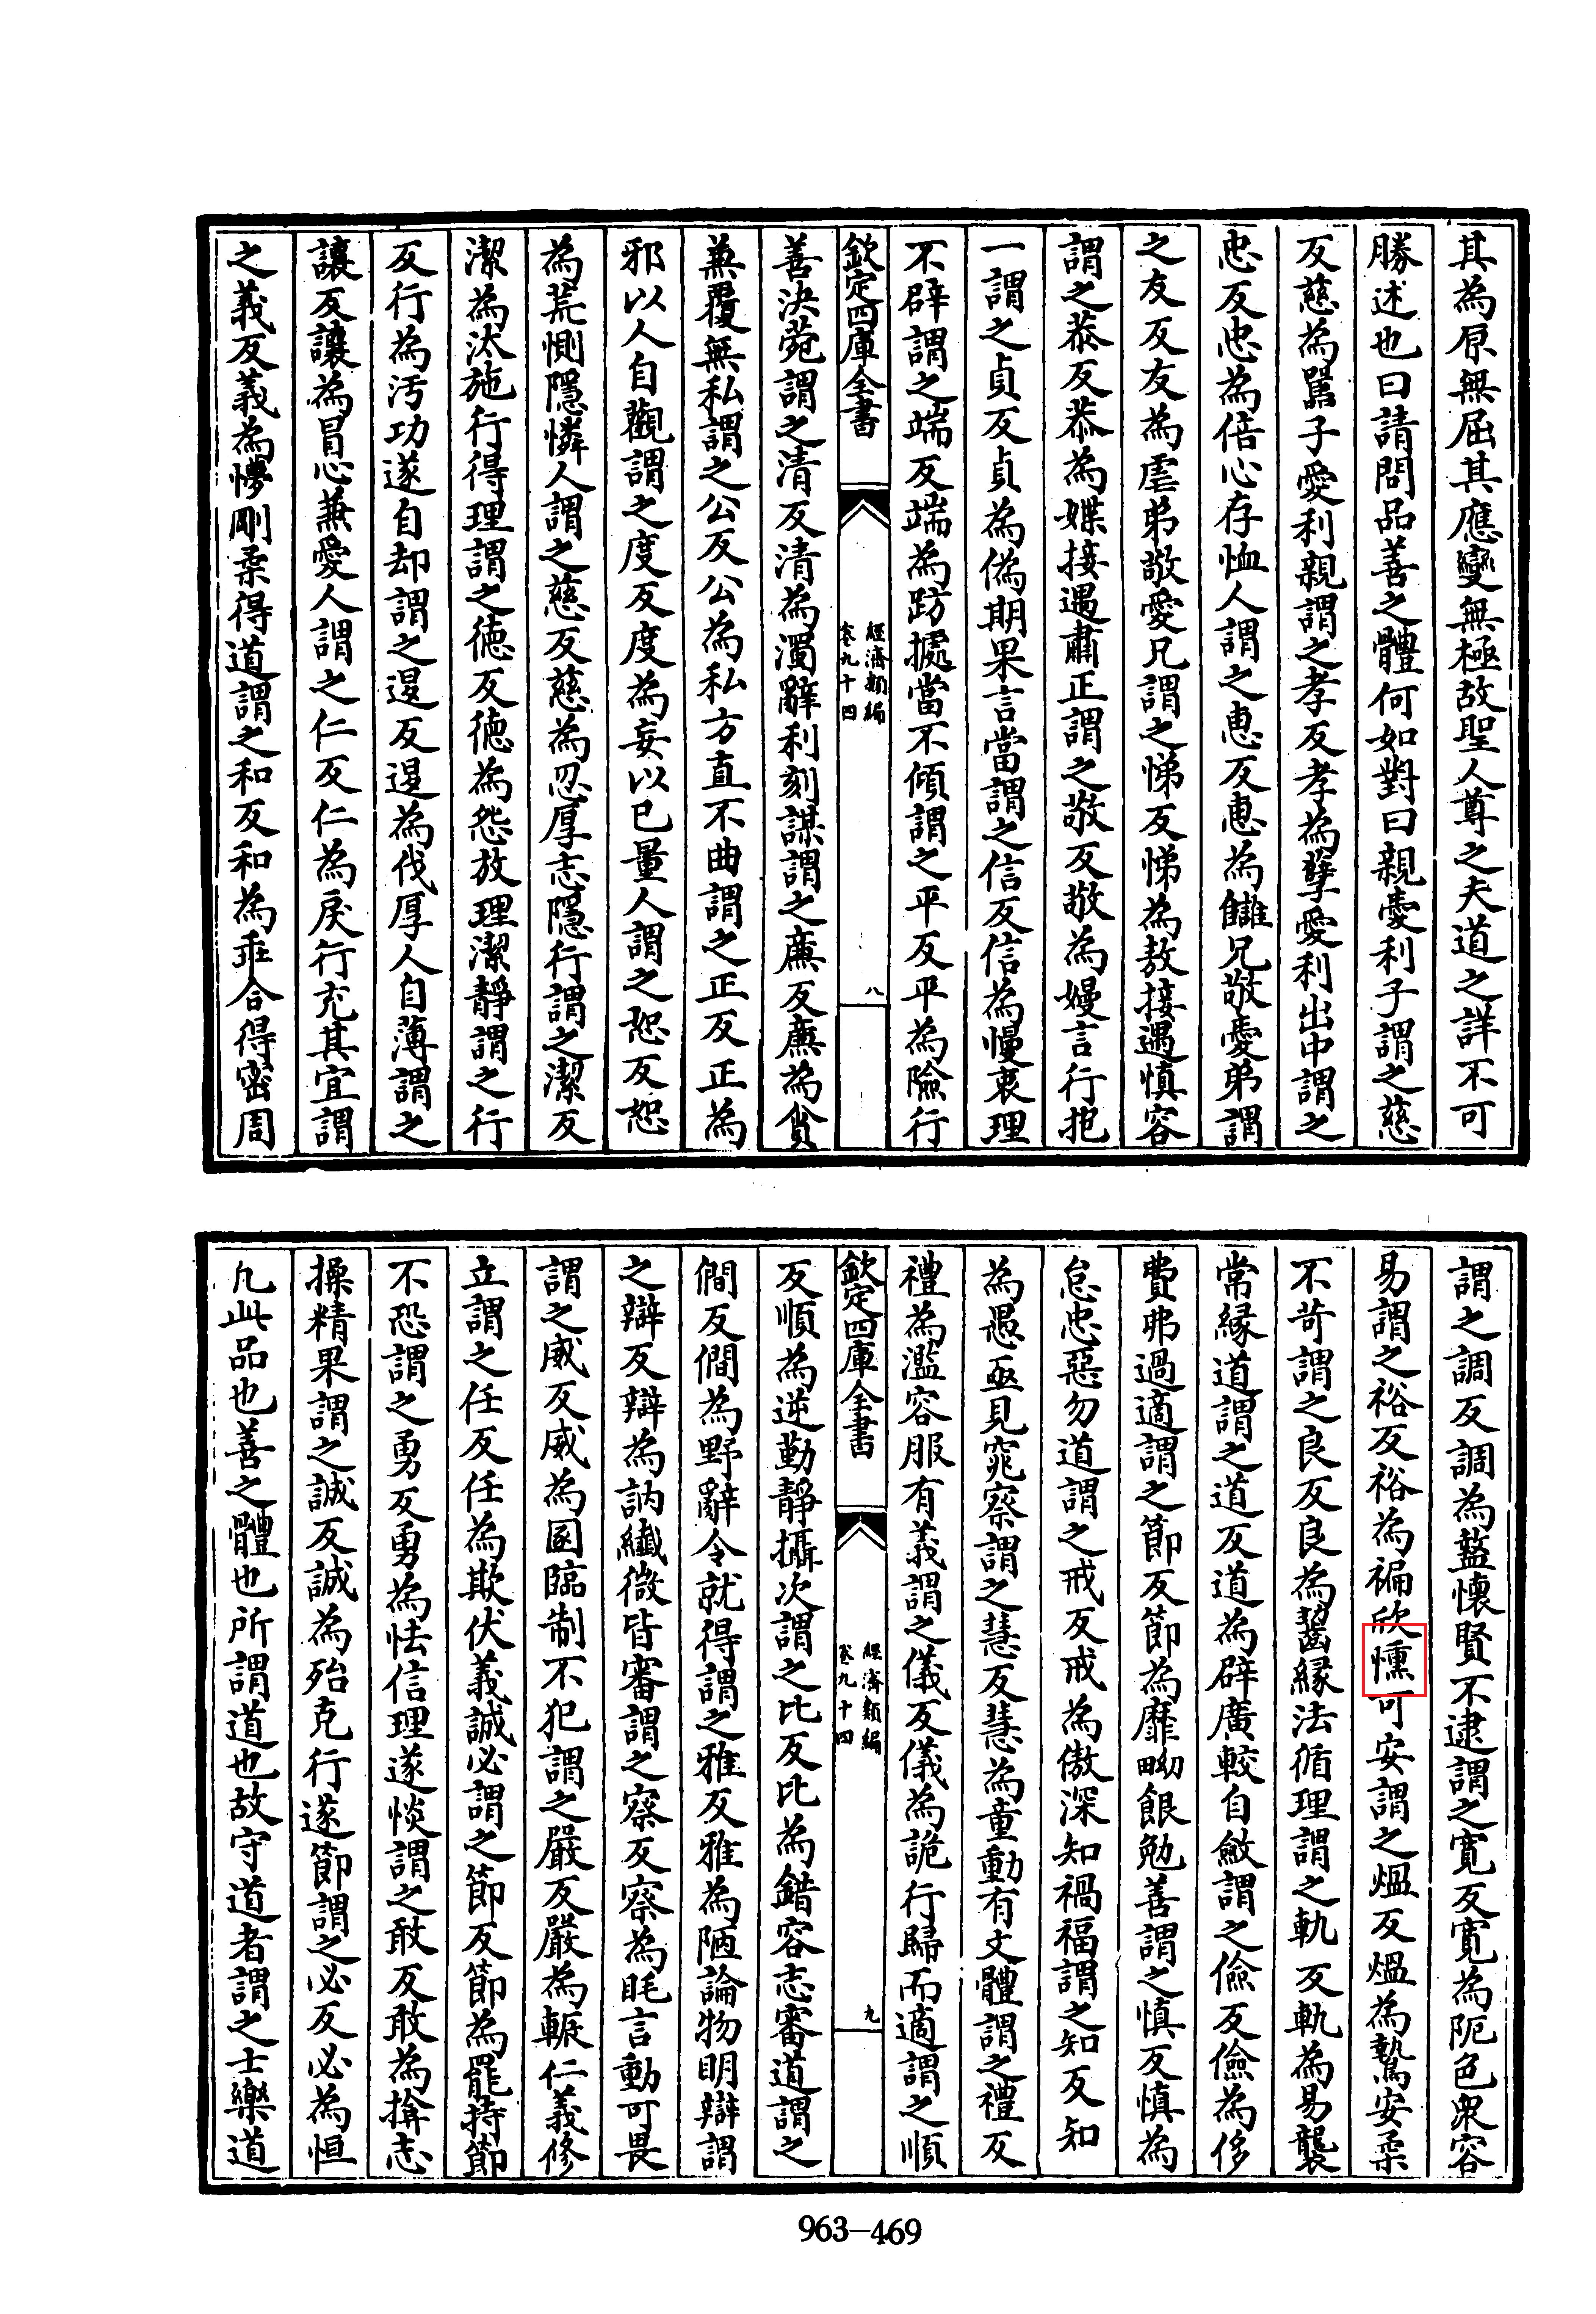 其為原無屈其應變無極故聖人尊之夫道之詳不可
勝述也曰請問品善之體何如對曰親愛利子謂之慈
反慈為嚚子愛利親謂之孝反孝為孽愛利出中謂之
忠反忠為倍心存恤人謂之恵反恵為讎兄敬愛弟謂
之友反友為虐弟敬愛兄謂之悌反悌為敖接遇慎容
謂之恭反恭為媟接遇肅正謂之敬反敬為嫚言行抱
一謂之貞反貞為偽期果言當謂之信反信為慢衷理
不辟謂之端反端為跘據當不傾謂之平反平為險行
欽定四庫全書
經濟類編
卷九十四
八
善決菀謂之清反清為濁辭利刻謀謂之亷反亷為貪
兼覆無私謂之公反公為私方直不曲謂之正反正為
邪以人自觀謂之度反度為妄以已量人謂之恕反恕
為荒惻隱憐人謂之慈反慈為忍厚志隱行謂之潔反
潔為汰施行得理謂之徳反徳為怨放理潔靜謂之行
反行為汚功遂自却謂之退反退為伐厚人自薄謂之
讓反讓為冒心兼愛人謂之仁反仁為戾行充其宜謂
之義反義為懜剛柔得道謂之和反和為乖合得密周
謂之調反調為盭懷賢不逮謂之寛反寛為阨色衆容
易謂之裕反裕為褊欣懽可安謂之熅反熅為鷙安柔
不苛謂之良反良為齧縁法循理謂之軌反軌為易襲
常縁道謂之道反道為辟廣較自斂謂之儉反儉為侈
費弗過適謂之節反節為靡㽪僶勉善謂之慎反慎為
怠忠惡勿道謂之戒反戒為傲深知禍福謂之知反知
為愚亟見窕察謂之慧反慧為童動有文體謂之禮反
禮為濫容服有義謂之儀反儀為詭行歸而適謂之順
欽定四庫全書
經濟類編
卷九十四
九
反順為逆勤靜攝次謂之比反比為錯容志審道謂之
僩反僩為野辭令就得謂之雅反雅為陋論物明辯謂
之辯反辯為訥纎微皆審謂之察反察為眊言動可畏
謂之威反威為圂臨制不犯謂之嚴反嚴為䡅仁義修
立謂之任反任為欺伏義誠必謂之節反節為罷持節
不恐謂之勇反勇為怯信理遂惔謂之敢反敢為揜志
操精果謂之誠反誠為殆克行遂節謂之必反必為恒
凡此品也善之體也所謂道也故守道者謂之士樂道
963-469